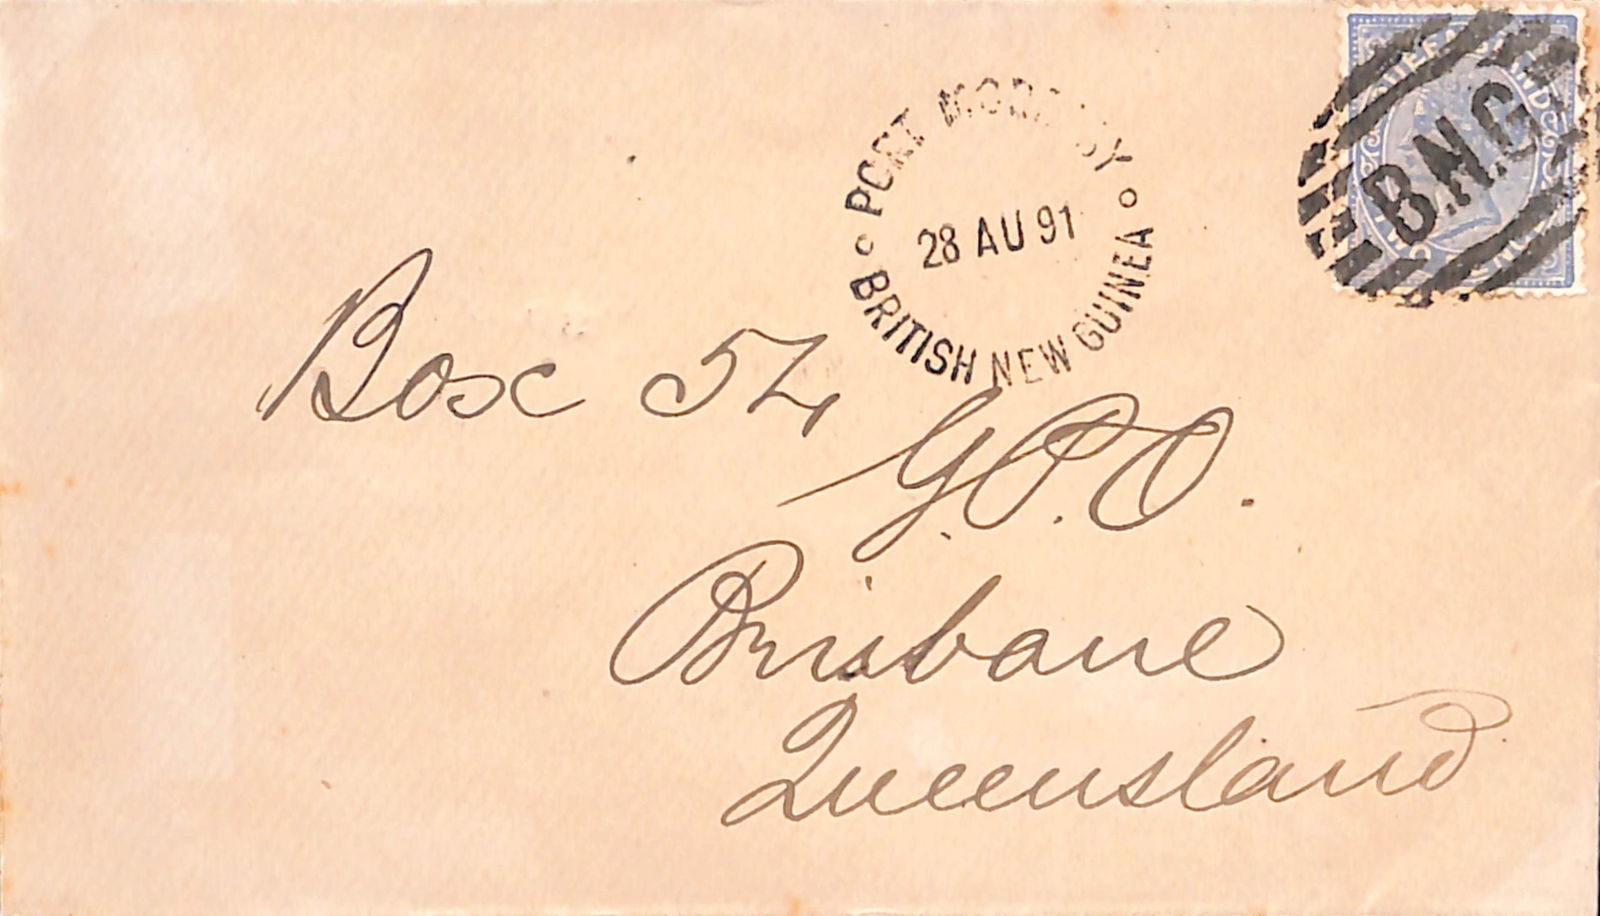 PORT MORESBY
28 AU 91
BRITISH NEW GUINEA
QUEENSLAND
B.N.G
Box 54
G.P.O.
Brisbane
Queensland